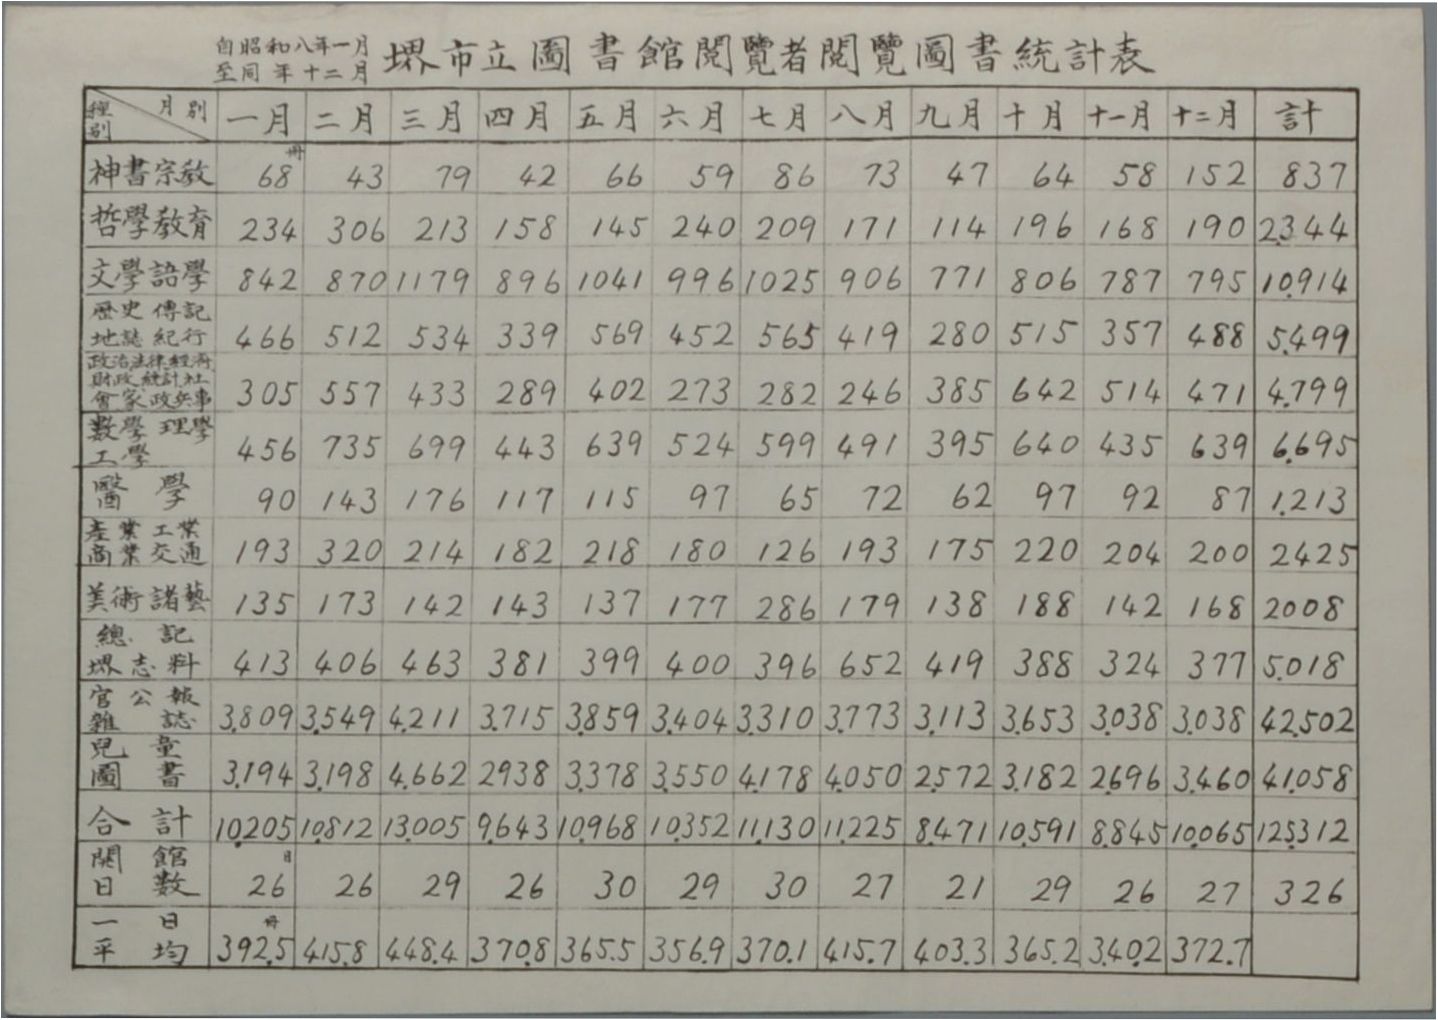 自昭和八年一月
至同 年十二月
堺市立圖書館閲覽者閲覽圖書統計表
種別 月別 一月 二月 三月 四月 五月 六月 七月 八月 九月 十月 十一月 十二月 計
神書宗教 68冊 43 79 42 66 59 86 73 47 64 58 152 837
哲學教育 234 306 213 158 145 240 209 171 114 196 168 190 2.344
文學語學 842 870 1179 896 1041 996 1025 906 771 806 787 795 10.914
歴史 傳記
地誌 紀行 466 512 534 339 569 452 565 419 280 515 357 488 5.499
政治法律經済
財政統計社
會家政兵事 305 557 433 289 402 273 282 246 385 642 514 471 4.799
數學 理學
工學 456 735 699 443 639 524 599 491 395 640 435 639 6.695
醫學 90 143 176 117 115 97 65 72 62 97 92 87 1.213
産業工業
商業交通 193 320 214 182 218 180 126 193 175 220 204 200 2425
美術諸藝 135 173 142 143 137 177 286 179 138 188 142 168 2008
總記
堺志料 413 406 463 381 399 400 396 652 419 388 324 377 5.018
官公報
雜誌 3.809 3.549 4.211 3.715 3.859 3.404 3.310 3.773 3.113 3.653 3.038 3.038 42.502
兒童
圖書 3.194 3.198 4.662 2938 3.378 3.550 4.178 4.050 2.572 3.182 2.696 3.460 41.058
合計 10.205 10.812 13.005 9.643 10.968 10.352 11.130 11.225 8.471 10.591 8.845 10.065 125.312
開館
日數 26日 26 29 26 30 29 30 27 21 29 26 27 326
一日
平均 392.5冊 415.8 448.4 370.8 365.5 356.9 370.1 415.7 403.3 365.2 3.40.2 372.7